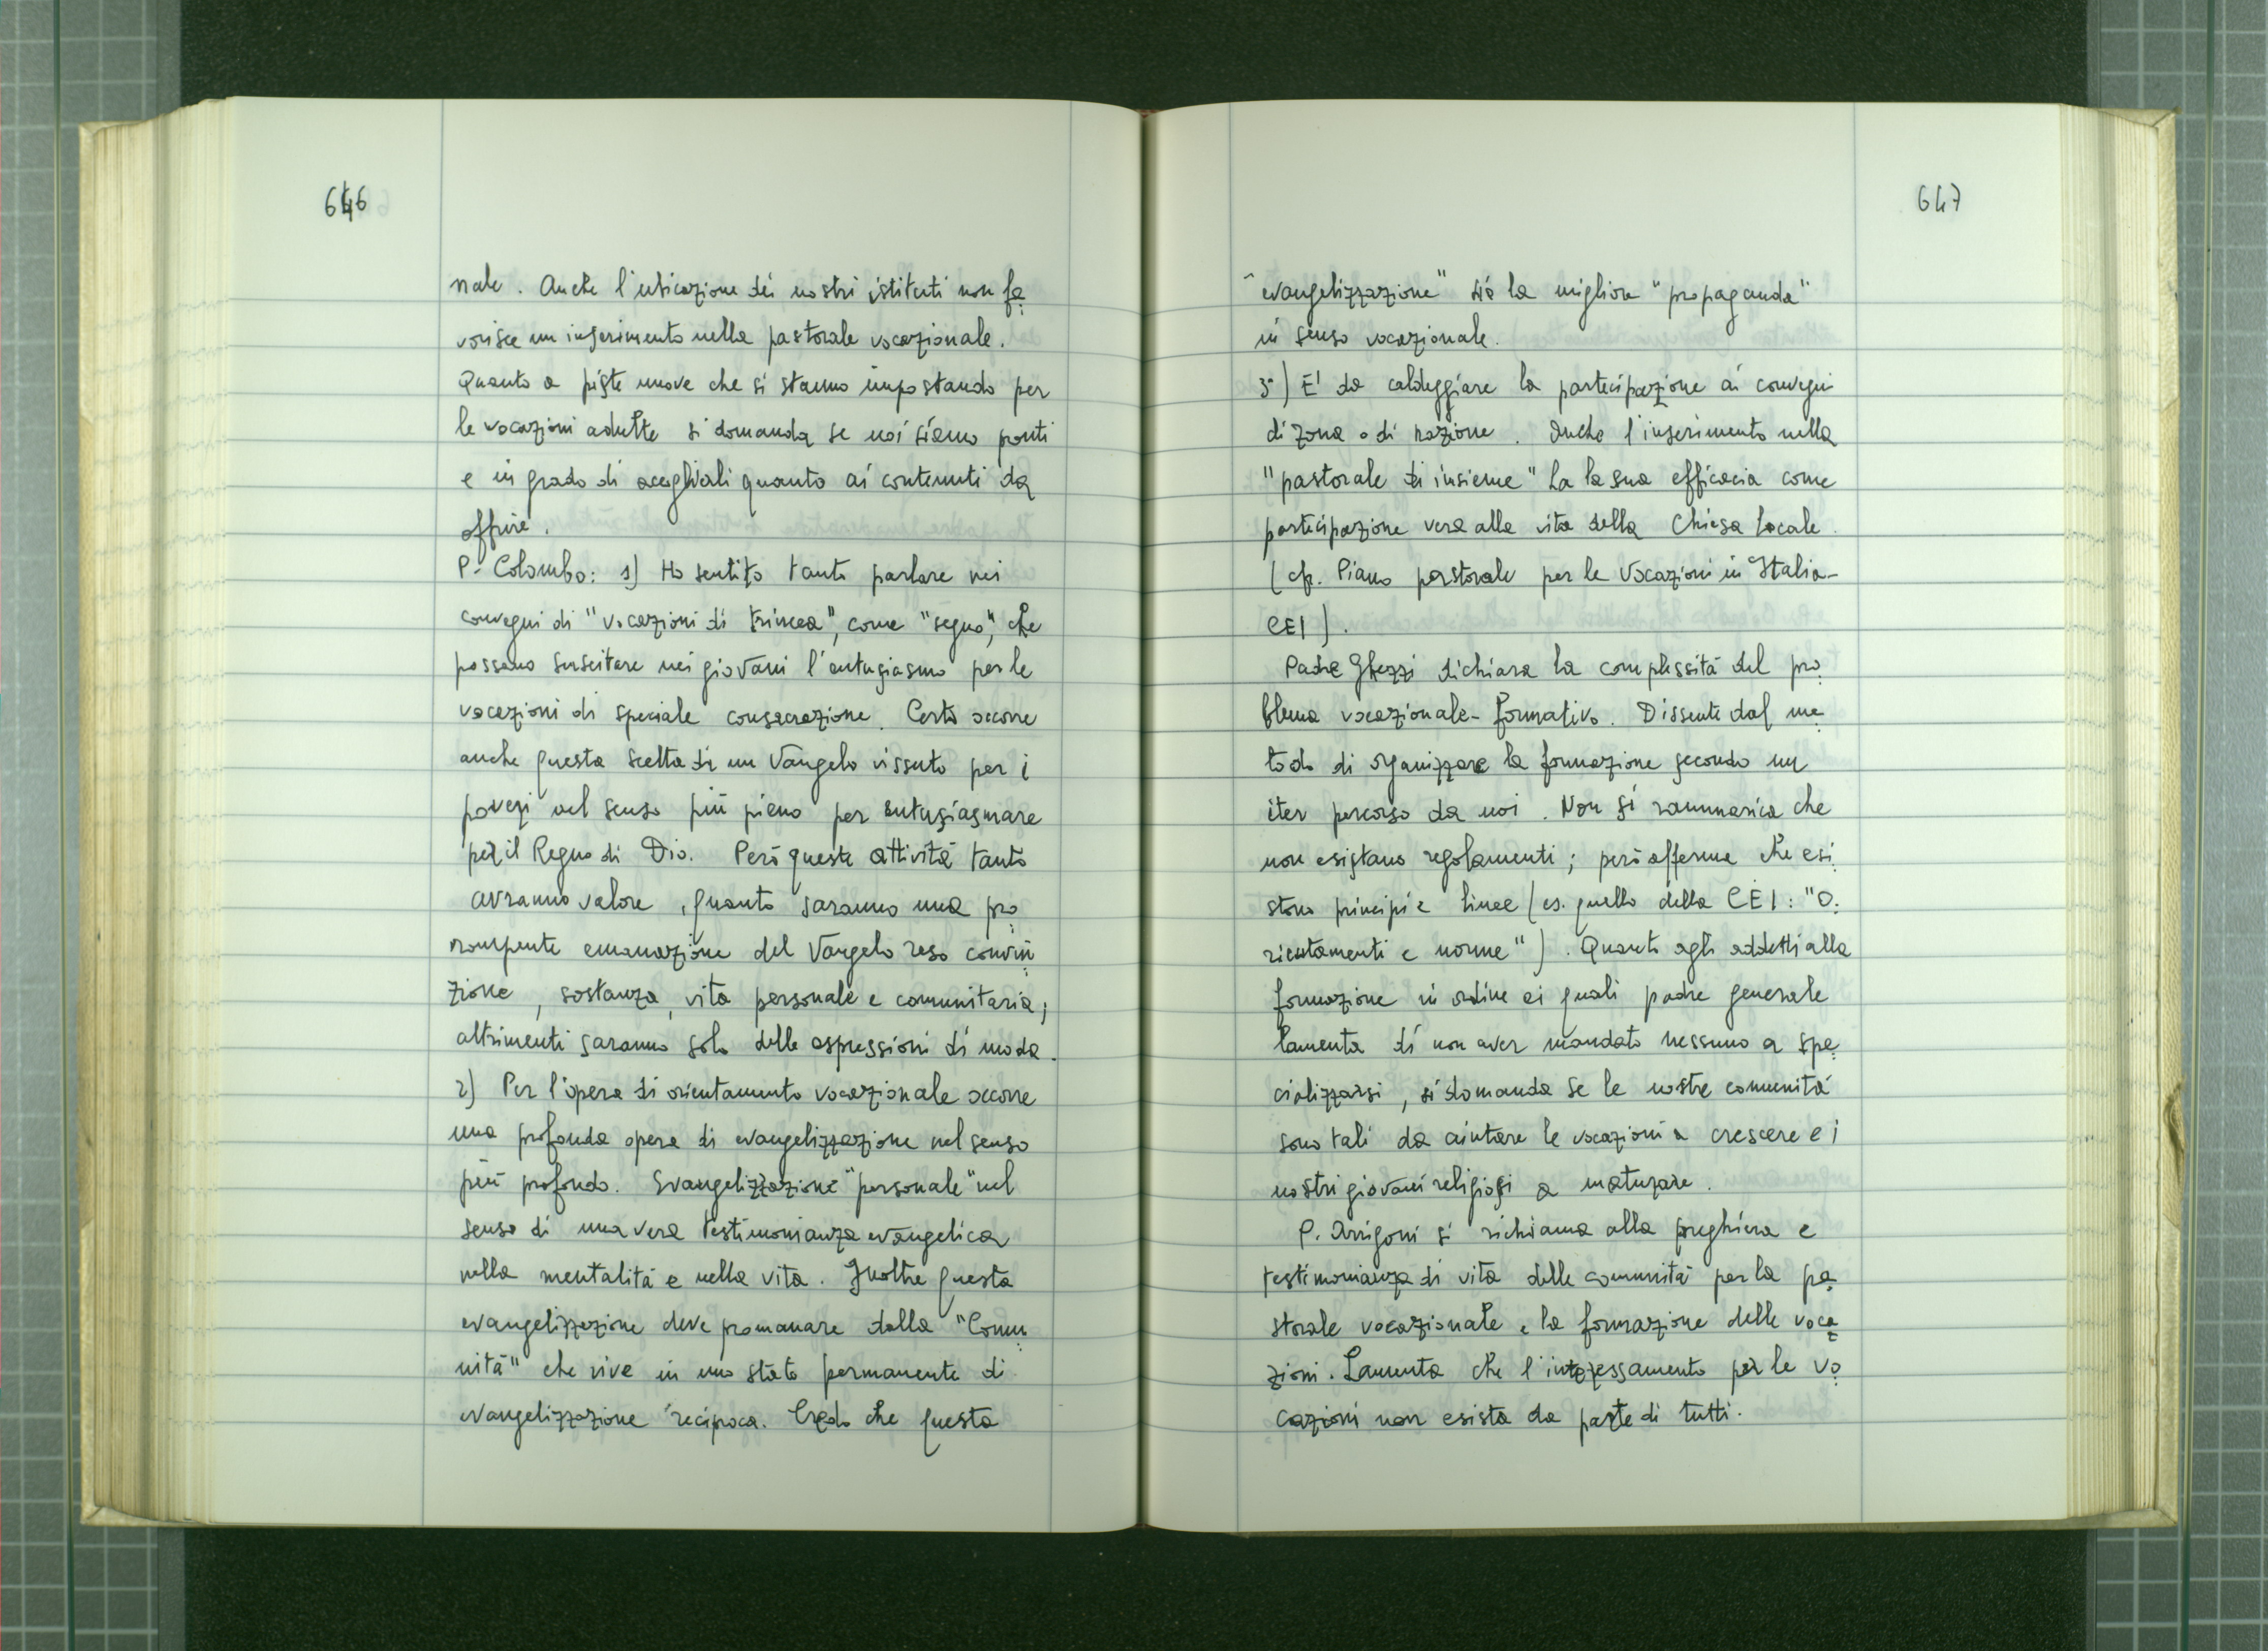 646
nale. Anche l'ubicazione dei nostri istituti non fa
vorisce un inserimento nella pastorale vocazionale.
Quanto a piste nuove che si stanno impostando per
le vocazioni adulte si domanda se noi siamo pronti
e in grado di accoglierli quanto ai contenuti da
offrire.
P. Colombo: 1) Ho sentito tanto parlare nei
convegni di "vocazioni di trincea", come "segno", che
possano suscitare nei giovani l'entusiasmo per le
vocazioni di speciale consacrazione. Certo occorre
anche questa scelta di un Vangelo vissuto per i
poveri nel senso più pieno per entusiasmare
per il Regno di Dio. Però queste attività tanto
avranno valore, quanto saranno una pro
rompente emanazione del Vangelo reso convin
zione, sostanza, vita personale e comunitaria;
altrimenti saranno solo delle espressioni di moda.
2) Per l'opera di orientamento vocazionale occorre
una profonda opera di evangelizzazione nel senso
più profondo. Evangelizzazione "personale" nel
senso di una vera testimonianza evangelica
nella mentalità e nella vita. Inoltre questa
evangelizzazione deve promanare dalla "Comu
nità" che vive in uno stato permanente di
evangelizzazione reciproca. Credo che questa
647
"evangelizzazione" sia la migliore "propaganda"
in senso vocazionale.
3°) E' da caldeggiare la partecipazione ai convegni
di zona o di nazione. Anche l'inserimento nella
"pastorale di insieme" ha la sua efficacia come
partecipazione vera alla vita della Chiesa locale
(cfr. Piano pastorale per le Vocazioni in Italia-
CEI).
Padre Ghezzi dichiara la complessità del pro
blema vocazionale-formativo. Dissente dal me
todo di organizzare la formazione secondo un
iter percorso da noi. Non si rammarica che
non esistano regolamenti; però afferma che esi
stono principi e linee (es. quello della CEI: "O
rientamenti e norme"). Quanto agli addetti alla
formazione in ordine ai quali padre generale
lamenta di non aver mandato nessuno a spe
cializzarsi, si domanda se le nostre comunità
sono tali da aiutare le vocazioni a crescere e i
nostri giovani religiosi a maturare.
P. Arrigoni si richiama alla preghiera e
testimonianza di vita delle comunità per la pa
storale vocazionale e la formazione delle voca
zioni. Lamenta che l'interessamento per le vo
cazioni non esista da parte di tutti.